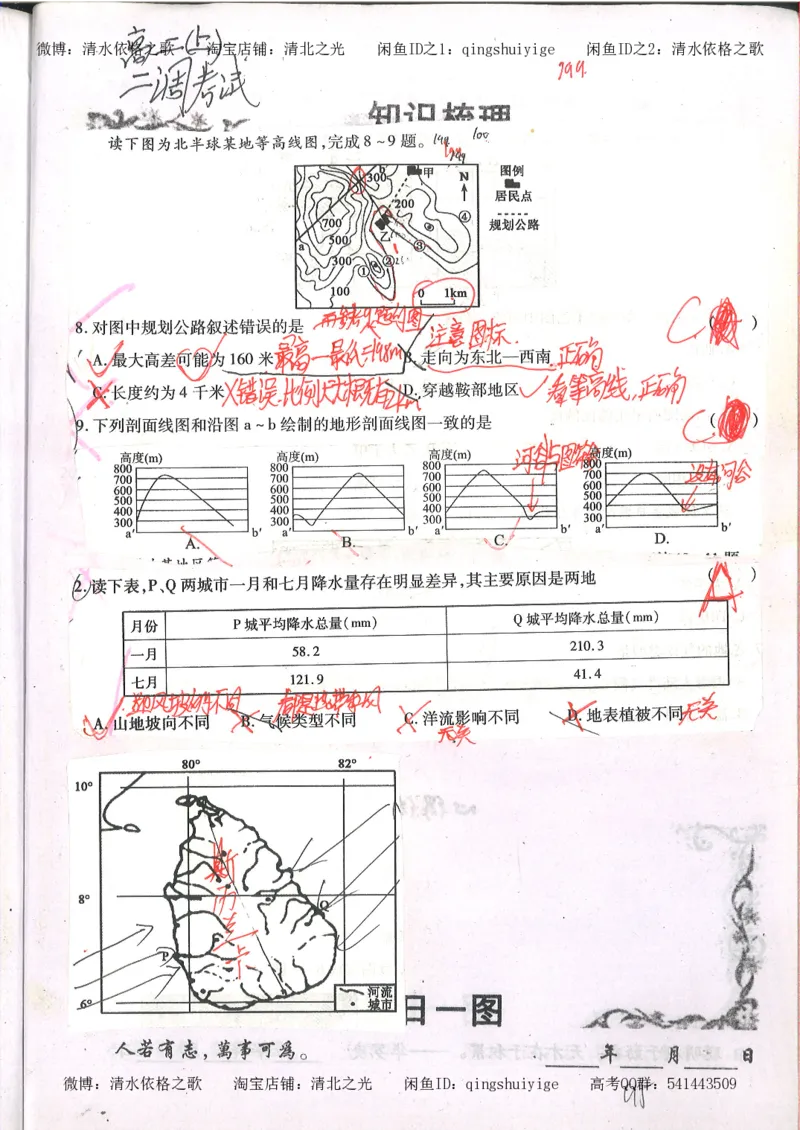 微博：清水依格之歌 淘宝店铺：清北之光 闲鱼ID之1：qingshuiyige 闲鱼ID之2：清水依格之歌
高三(上)
二调考试
199.
知识梳理
读下图为北半球某地等高线图,完成8~9题。
甲
300
b
N
200
700
乙
④
500
a
③
300
②
①
100
0 1km
图例
居民点
规划公路
8.对图中规划公路叙述错误的是 ( )
C
注意图标.
A.最大高差可能为160米 B.走向为东北—西南 正确
C.长度约为4千米 D.穿越鞍部地区
X错误.
看等高线,正确
9.下列剖面线图和沿图a~b绘制的地形剖面线图一致的是 ( )
C
高度(m) 高度(m) 高度(m) 高度(m)
800 800 800 800
700 700 700 700
600 600 600 600
500 500 500 500
400 400 400 400
300 300 300 300
a′ b′ a′ b′ a′ b′ a′ b′
A. B. C. D.
没有河谷
2.读下表,P、Q两城市一月和七月降水量存在明显差异,其主要原因是两地 ( )
A
月份 P城平均降水总量(mm) Q城平均降水总量(mm)
一月 58.2 210.3
七月 121.9 41.4
A.山地坡向不同 B.气候类型不同 C.洋流影响不同 D.地表植被不同
无关
无关
80° 82°
10°
8°
6°
斯里兰卡
Q
P
河流
城市
日一图
人若有志，萬事可爲。
年 月 日
微博：清水依格之歌 淘宝店铺：清北之光 闲鱼ID：qingshuiyige 高考QQ群：541443509